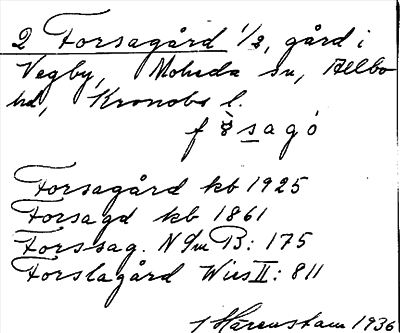 2 Forsagård 1/2, gård i
Vegby, Moheda sn, Allbo
hd, Kronobs l.
f sagó
Forsagård kb 1925
Forsagd kb 1861
Forssag. N B: 175
Forslagård Wies II: 811
Härenstam 1936